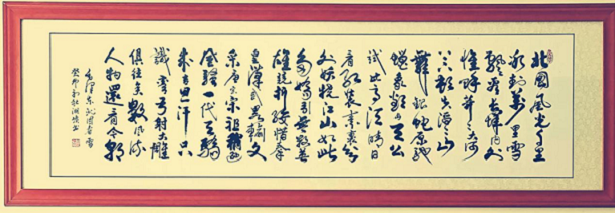 北國風光千里
冰封萬里雪
飄望長城内外
惟餘莽莽大河
上下頓失滔滔山
舞銀蛇原馳
蠟象欲與天公
試比高須晴日
看紅裝素裹分
外妖嬈江山如此
多嬌引無數英
雄競折腰惜秦
皇漢武略輸文
采唐宗宋祖稍遜
風騷一代天驕
成吉思汗只
識彎弓射大雕
俱往矣數風流
人物還看今朝
毛澤東沁園春雪
癸卯初秋書